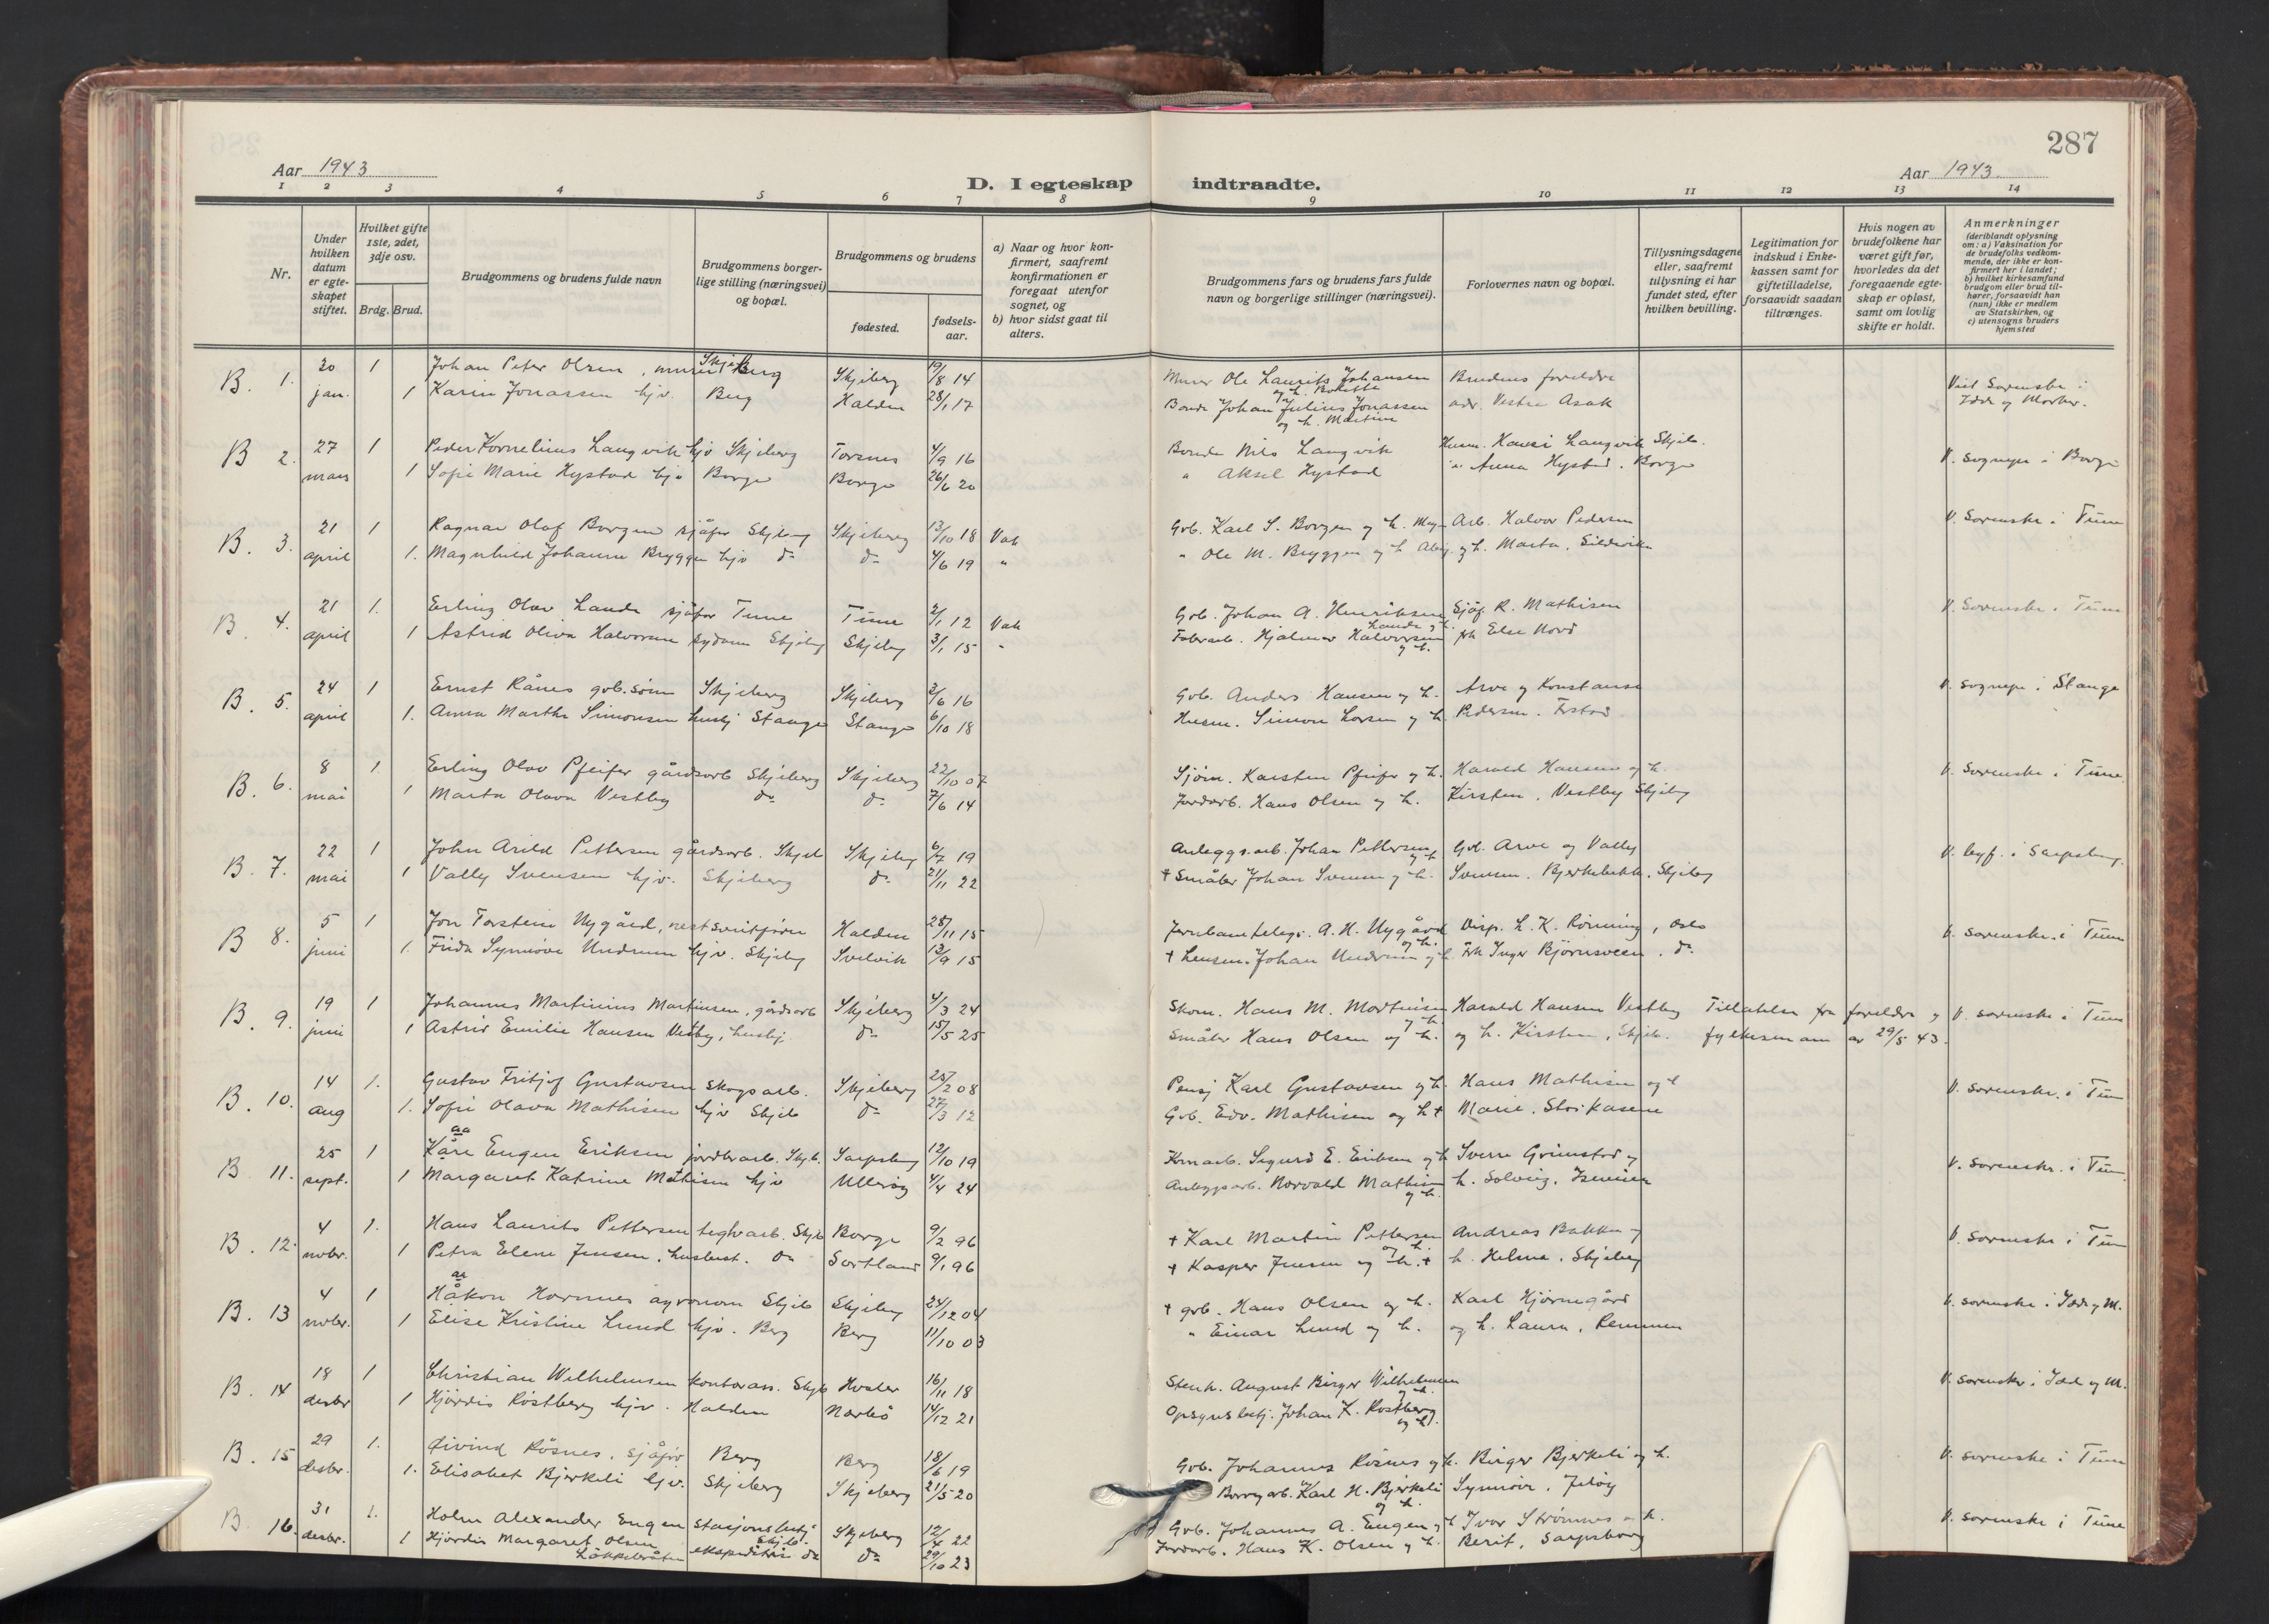 287
Aar 1943
Aar 1943.
D. I egteskap indtraadte.
1 2 3 4 5 6 7 8 9 10 11 12 13 14
Nr.
Under hvilken datum er egteskapet stiftet.
Hvilket gifte 1ste, 2det, 3dje osv.
Brdg. Brud.
Brudgommens og brudens fulde navn
Brudgommens borgerlige stilling (næringsvei) og bopæl.
Brudgommens og brudens
fødested.
fødselsaar.
a) Naar og hvor konfirmert, saafremt konfirmationen er foregaat utenfor sognet, og
b) hvor sidst gaat til alters.
Brudgommens fars og brudens fars fulde navn og borgerlige stillinger (næringsvei).
Forlovernes navn og bopæl.
Tillysningsdagene eller, saafremt tillysning ei har fundet sted, efter hvilken bevilling.
Legitimation for indskud i Enkekassen samt for giftetilladelse, forsaavidt saadan tiltrænges.
Hvis nogen av brudefolkene har været gift før, hvorledes da det foregaaende egteskap er opløst, samt om lovlig skifte er holdt.
Anmerkninger (deriblandt oplysning om: a) Vaksination for de brudefolks vedkommende, der ikke er konfirmert her i landet; b) hvilket kirkesamfund brudgom eller brud tilhører, forsaavidt han (hun) ikke er medlem av Statskirken, og c) utensogns bruders hjemsted
B. 1. 20 1 Johan Peter Olsen, murer Skjeberg Skjeberg 19/8 14 Murer Ole Laurits Johansen og h. Brudens foreldre Vied Sorenskr. i
jan. 1 Karin Jonassen hjv. Berg Halden 28/1 17 Bonde Johan Julius Jonassen og h. Martine adr. Vestre Asak Idde og Marker.
B 2. 27 1 Peder Kornelius Langvik hjv Skjeberg Torsnes 4/9 16 Bonde Nils Langvik Husm. Langvik Skjeb. V. sognepr. i Borge
mars 1 Sofie Marie Hystad hjv Borge Borge 26/6 20 " Aksel Hystad " Anna Hystad. Borge
B. 3. 21 1 Ragnar Olaf Borgen sjåfør Skjeberg Skjeberg 13/10 18 Vak Gvb. Karl S. Borgen og h. Arb. Halvor Pedersen V. Sorenskr i Tune
april 1. Magnhild Johanne Bryggen hjv do do 4/6 19 " " Ole M. Bryggen og h og h. Marta, Sildevika
B. 4. 21 1. Erling Olav Lande sjåfør Tune Tune 2/1 12 Vak Gvb. Johan A. Henriksen Lande og h. Sjåf. R. Mathisen V. Sorenskr. i Tune
april 1 Astrid Oliva Halvorsen sydame Skjeberg Skjeberg 3/1 15 " Fabrarb. Hjalmar Halvorsen og h. frk Else Nord
B. 5. 24 1 Ernst Rånes gvb.sønn Skjeberg Skjeberg 2/6 16 Gvb. Anders Hansen og h. Arve og Konstanse V. sognepr i Stange
april 1. Anna Marthe Simonsen Stange Stange 6/10 18 Husm. Simon Larsen og h. Pedersen.
B. 6. 8 1 Erling Olav Pfeifer gårdsarb Skjeberg Skjeberg 22/10 07 Sjøm. Karsten Pfeifer og h. Harald Hansen og h. V. Sorenskr i Tune.
mai 1 Marta Olava Vestby do do 7/6 14 Jordarb. Hans Olsen og h. Kirsten, Vestby Skjeberg
B. 7. 22 1 John Arild Pettersen gårdsarb. Skjeb Skjeberg 6/7 19 Anleggs.arb. Johan Pettersen og h Gvb. Arve og Vally V. byf. i Sarpsborg.
mai 1 Vally Svensen hjv. Skjeberg do 21/11 22 + Småbr Johan Svensen og h. Svensen. Bjerkebekk. Skjeberg
B 8. 5 1 Jon Torstein Nygård, Halden 28/11 15 Jernbanetelegr. A. H. Nygård og h. Disp. L. K. Rönning, Oslo V. sorenskr. i Tune
juni 1. Frida Synnöve Undrum hjv. Skjeberg Svelvik 13/9 15 + Lensm. Johan Undrum og h Frk Inger Björnsveen. do
B. 9. 19 1 Johannes Martinius Martinsen, gårdsarb Skjeberg 4/3 24 Skom. Hans M. Martinsen og h. Harald Hansen Vestby Tillatelse fra foreldre og V. sorenskr i Tune
juni 1 Astrid Emilie Hansen Vestby, husbj. do 15/5 25 Småbr Hans Olsen og h. og h. Kirsten, Skjeb. fylkesmann av 29/5 43.
B. 10. 14 1. Gustav Fritjof Gustavsen skogsarb. Skjeberg 25/2 08 Pensj Karl Gustavsen og h. Hans Mathisen og h V. sorenskr. i Tune
aug 1. Sofie Olava Mathisen hjv Skjeb do 27/3 12 Gvb. Edv. Mathisen og h + Marie.
B. 11. 25 1 aa Kåre Eugen Eriksen jordbrarb. Skjb. Sarpsborg 12/10 19 Kornarb. Sigurd E. Eriksen og h Sverre Grimstad og V. Sorenskr. i Tune
sept. 1 Margaret Katrine Mathisen hjv Ullerøy 4/4 24 Anleggsarb. Norvald Mathisen og h. h. Solveig, Isevien
B. 12. 4 1. Hans Laurits Pettersen teglvarb. Skjb Borge 9/2 96 + Karl Martin Pettersen og h. Andreas Bakken og V. Sorenskr i Tune
novbr. 1 Petra Elene Jensen, husbest. do Sortland 9/1 96 + Kasper Jensen og h. + h. Helene. Skjeberg
B. 13 4 1 aa Håkon Hornnes agronom Skjeb Skjeberg 24/12 04 + gvb. Hans Olsen og h. Karl Hjörnegård V. sorenskr i Idde og M.
novbr. 1 Elise Kristine Lund hjv. Berg Berg 11/10 03 " Einar Lund og h. og h. Laura, Remmen
B. 14 18 1 Christian Wilhelmsen kontorass. Skjb Hvaler 16/11 18 Stenh. August Birger Wilhelmsen og h. V. sorenskr. i Idd og M.
desbr 1 Hjördis Röstberg hjv. Halden Nærbö 14/12 21 Opsynsbetj. Johan K. Röstberg og h.
B. 15 29 1. Öivind Rösnes, sjåfør Berg Berg 18/6 19 Gvb. Johannes Rösnes og h. Birger Bjerkeli og h. V. sorenskr i Tune
desbr. 1. Elisabet Bjerkeli hjv. Skjeberg Skjeberg 21/5 20 Borregarb. Karl H. Bjerkeli og h. Synnöve, Jelöy
B. 16. 31 1. Holm Alexander Eugen stasjonsbetj Skjeb. Skjeberg 12/4 22 Gvb. Johannes A. Eugen og h Ivar Strömnes og h. V. sorenskr i Tune
desbr. 1 Hjördis Margaret Olsen Lökkebråten ekspeditrise do do 29/10 23 Jordarb. Hans K. Olsen og h. Berit, Sarpsborg